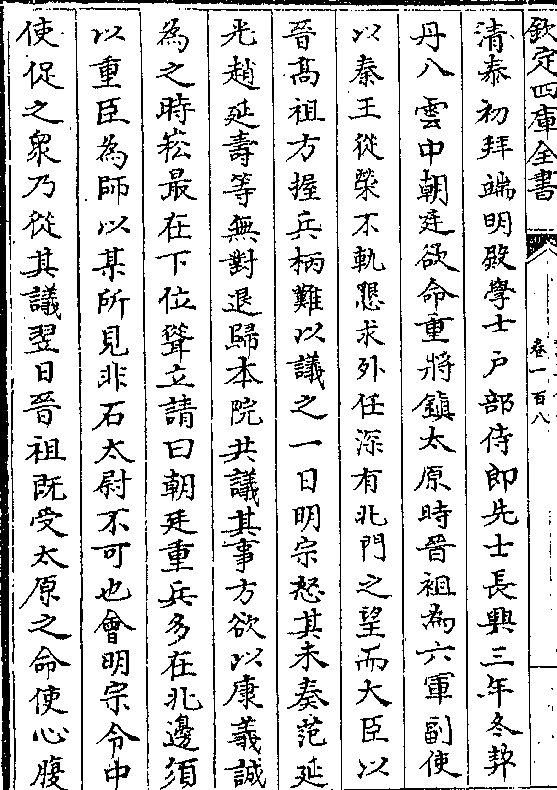 欽定四庫全書
卷一百八
清泰初拜端明殿學士户部侍郎先士長興三年冬契
丹入雲中朝廷欲命重將鎮太原時晉祖為六軍副使
以秦王從榮不軌懇求外任深有北門之望而大臣以
晉髙祖方握兵柄難以議之一日明宗怒其未奏范延
光趙延壽等無對退歸本院共議其事方欲以康義誠
為之時崧最在下位聳立請曰朝廷重兵多在北邊須
以重臣為師以某所見非石太尉不可也會明宗令中
使促之衆乃從其議翌日晉祖既受太原之命使心腹